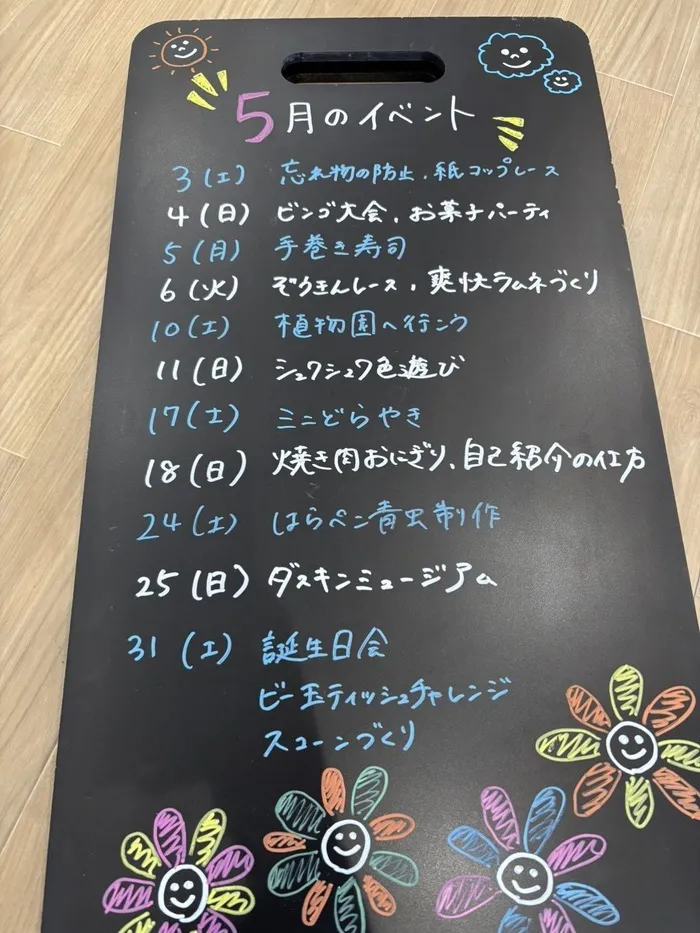 5月のイベント
3(土) 忘れ物の防止、紙コップレース
4(日) ビンゴ大会、お菓子パーティ
5(月) 手巻き寿司
6(火) ぞうきんレース、爽快ラムネづくり
10(土) 植物園へ行こう
11(日) シュワシュワ色遊び
17(土) ミニどらやき
18(日) 焼き肉おにぎり、自己紹介の仕方
24(土) はらペン青虫制作
25(日) ダスキンミュージアム
31(土) 誕生日会
ビー玉ティッシュチャレンジ
スコーンづくり